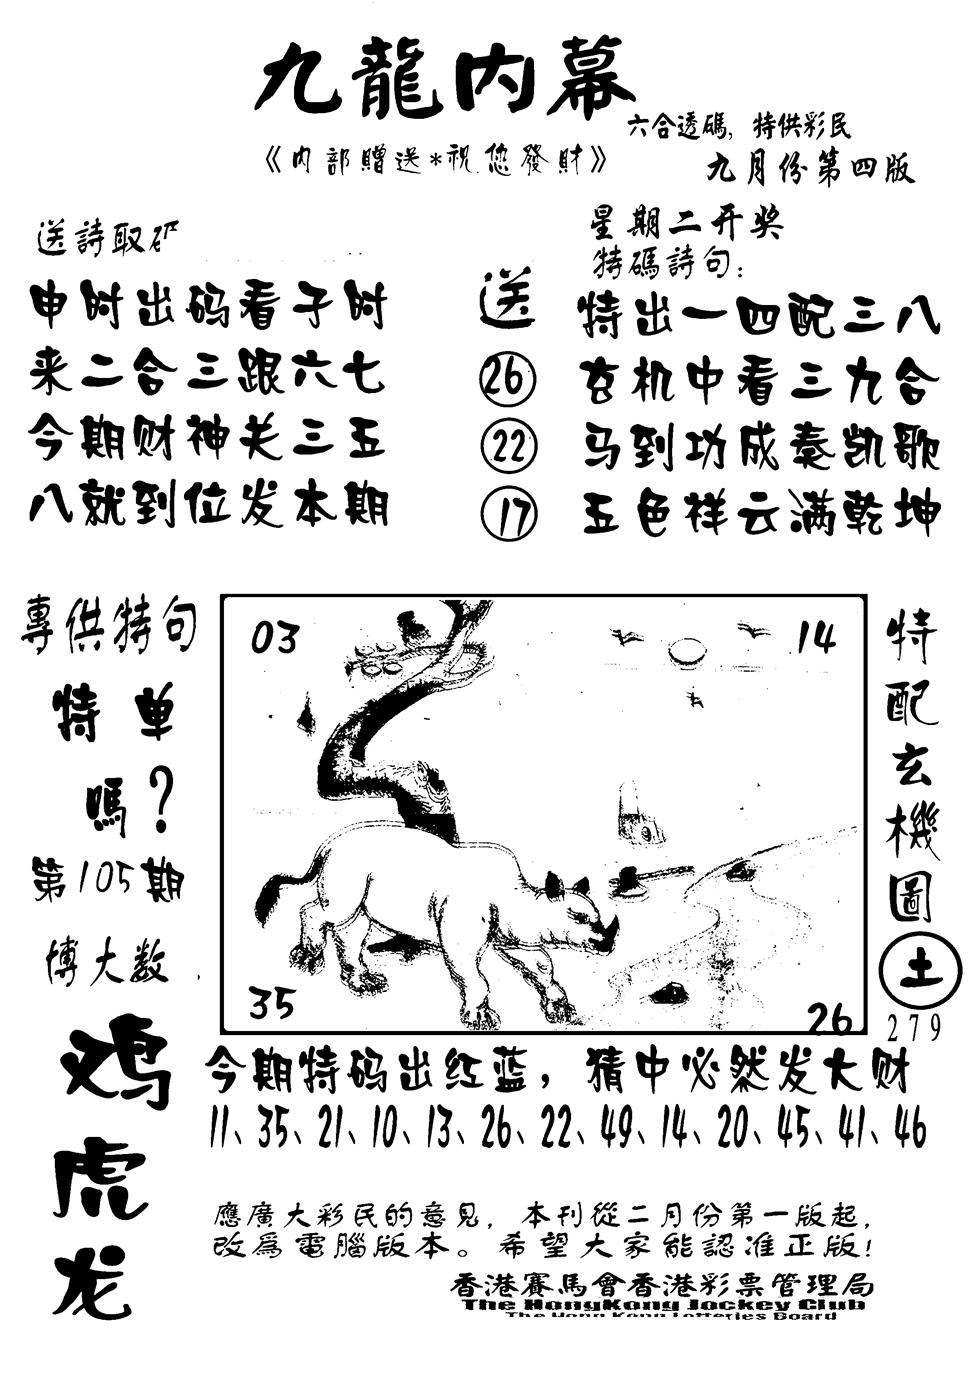 九龍内幕
六合透碼, 特供彩民
《内部贈送*祝您發財》
九月份第四版
送詩取
申时出码看子时
来二合三跟六七
今期财神关三五
八就到位发本期
送
26
22
17
星期二开奖
特碼詩句:
特出一四配三八
玄机中看三九合
马到功成奏凯歌
五色祥云满乾坤
專供特句
特单
嗎?
第105期
博大数
鸡
虎
龙
03
14
35
26
特配玄機圖
土
279
今期特码出红蓝,猜中必然发大财
11、35、21、10、13、26、22、49、14、20、45、41、46
應廣大彩民的意見, 本刊從二月份第一版起,
改爲電腦版本。希望大家能認准正版!
香港賽馬會香港彩票管理局
The HongKong Jockey Club
The Hong Kong Lotteries Board